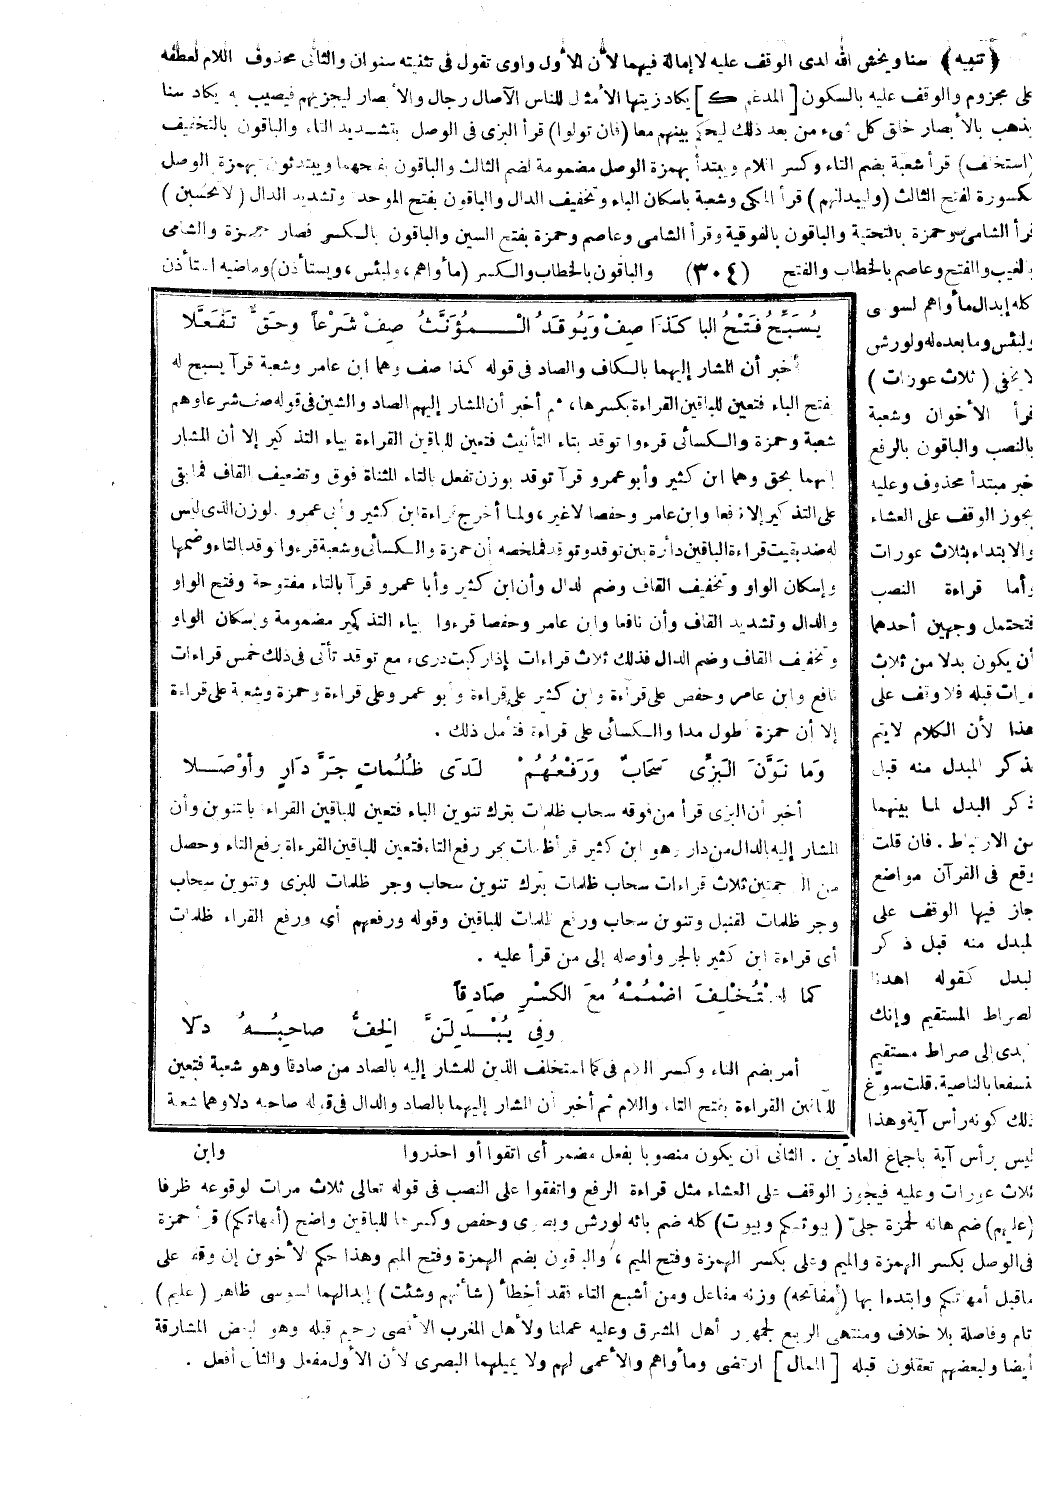 (تنبيه) سنا ويخش الله لدى الوقف عليه لا إمالة فيهما لأن الأول واوى تقول فى تثنيته سنوان والثانى محذوف اللام لعطفه
على مجزوم والوقف عليه بالسكون [المدغم ك] يكاد زيتها الأمثال للناس الآصال رجال والأبصار ليجزيهم فيصيب به يكاد سنا
يذهب بالأبصار خلق كل شىء من بعد ذلك ليحكم بينهم معا (فان تولوا) قرأ البزى فى الوصل بتشديد التاء والباقون بالتخفيف
(استخلف) قرأ شعبة بضم التاء وكسر اللام ويبتدأ بهمزة الوصل مضمومة لضم الثالث والباقون بفتحهما ويبتدئون بهمزة الوصل
مكسورة لفتح الثالث (وليبدلنهم) قرأ المكى وشعبة باسكان الباء وتخفيف الدال والباقون بفتح الموحدة وتشديد الدال (لا تحسبن)
قرأ الشامى وحمزة بالتحتية والباقون بالفوقية وقرأ الشامى وعاصم وحمزة بفتح السين والباقون بالكسر فصار حمزة والشامى
بالغيب والفتح وعاصم بالخطاب والفتح (٣٠٤) والباقون بالخطاب والكسر (مأواهم، ولبئس، ويستأذن) وماضيه استأذن
كله إبدال مأواهم لسوسى
ولبئس وما بعده له ولورش
لا يخفى (ثلاث عورات)
قرأ الأخوان وشعبة
بالنصب والباقون بالرفع
خبر مبتدأ محذوف وعليه
يجوز الوقف على العشاء
والابتداء بثلاث عورات
وأما قراءة النصب
فتحتمل وجهين أحدهما
أن يكون بدلا من ثلاث
مرات قبله فلا وقف على
هذا لأن الكلام لا يتم
بذكر المبدل منه قبل
ذكر البدل لما بينهما
من الارتباط. فان قلت
وقع فى القرآن مواضع
جاز فيها الوقف على
المبدل منه قبل ذكر
البدل كقوله اهدنا
الصراط المستقيم وإنك
لتهدى إلى صراط مستقيم
لنسفعا بالناصية. قلت سوّغ
ذلك كونه رأس آية وهذا
يُسَبِّحُ فَتْحُ البا كَذَا صِفْ وَيُوقَدُ الْـمُؤَنَّثُ صِفْ شَرْعاً وحَقٌّ تَفَعَّلَا
أخبر أن المشار إليهما بالكاف والصاد فى قوله كذا صف وهما ابن عامر وشعبة قرآ يسبح له
بفتح الباء فتعين للباقين القراءة بكسرها، ثم أخبر أن المشار إليهم الصاد والشين فى قوله صف شرعا وهم
شعبة وحمزة والكسائى قرءوا توقد بتاء التأنيث فتعين للباقين القراءة بياء التذكير إلا أن المشار
إليهما بحق وهما ابن كثير وأبو عمرو قرآ توقد بوزن تفعل بالتاء المثناة فوق وتضعيف القاف فما بقى
على التذكير إلا نافعا وابن عامر وحفصا لا غير، ولما أخرج قراءة ابن كثير وأبى عمرو لوزن الذى ليس
له ضد بقيت قراءة الباقين دائرة بين توقد ويوقد فملخصه أن حمزة والكسائى وشعبة قرءوا توقد بالتاء وضمها
وإسكان الواو وتخفيف القاف وضم الدال وأن ابن كثير وأبا عمرو قرآ بالتاء مفتوحة وفتح الواو
والدال وتشديد القاف وأن نافعا وابن عامر وحفصا قرءوا بياء التذكير مضمومة وإسكان الواو
وتخفيف القاف وضم الدال فذلك ثلاث قراءات إذا ركبت درىء مع توقد تأتى فى ذلك خمس قراءات
نافع وابن عامر وحفص على قراءة وابن كثير على قراءة وأبو عمرو على قراءة وحمزة وشعبة على قراءة
إلا أن حمزة أطول مدا والكسائى على قراءة فتأمل ذلك.
وَما نَوَّنَ البَزِّى سَحَابٌ وَرَفْعُهُمْ لَدَى ظُلُمَاتٍ جَرَّ دَارٍ وأَوْصَلا
أخبر أن البزى قرأ من فوقه سحاب ظلمات بترك تنوين الباء فتعين للباقين القراءة بالتنوين وأن
المشار إليه بالدال من دار وهو ابن كثير قرأ ظلمات بجر رفع التاء فتعين للباقين القراءة برفع التاء وحصل
من الترجمتين ثلاث قراءات سحاب ظلمات بترك تنوين سحاب وجر ظلمات للبزى وتنوين سحاب
وجر ظلمات لقنبل وتنوين سحاب ورفع ظلمات للباقين وقوله ورفعهم أى ورفع القراء ظلمات
أى قراءة ابن كثير بالجر وأوصله إلى من قرأ عليه.
كما اسْتُخْلِفَ اضْمُمْهُ معَ الكَسْرِ صَادِقاً
وفي يُبْدِلَنَّ الخِفُّ صاحِبُهُ دلا
أمر بضم التاء وكسر اللام فى كما استخلف الذين للمشار إليه بالصاد من صادقا وهو شعبة فتعين
للباقين القراءة بفتح التاء واللام ثم أخبر أن المشار إليهما بالصاد والدال فى قوله صاحبه دلا وهما شعبة
ليس برأس آية باجماع العادّين. الثانى أن يكون منصوبا بفعل مضمر أى اتقوا أو احذروا وابن
ثلاث عورات وعليه فيجوز الوقف على العشاء مثل قراءة الرفع واتفقوا على النصب فى قوله تعالى ثلاث مرات لوقوعه ظرفا
(عليهم) ضم هائه لحمزة جلىّ (بيوتكم وبيوت) كله ضم بائه لورش وبصرى وحفص وكسرها للباقين واضح (أمهاتكم) قرأ حمزة
فى الوصل بكسر الهمزة والميم وعلى بكسر الهمزة وفتح الميم، والباقون بضم الهمزة وفتح الميم وهذا حكم الأخوين إن وقف على
ماقبل أمهاتكم وابتدءا بها (مفاتحه) وزنه مفاعل ومن أشبع التاء فقد أخطأ (شأنهم وشئت) إبدالهما لسوسى ظاهر (عليم)
تام وفاصلة بلا خلاف ومنتهى الربع لجمهور أهل المشرق وعليه عملنا ولأهل المغرب الأقصى رحيم قبله وهو لبعض المشارقة
أيضا ولبعضهم تعقلون قبله [الممال] ارتضى ومأواهم والأعمى لهم ولا يميلهما البصرى لأن الأول مفعل والثانى أفعل.